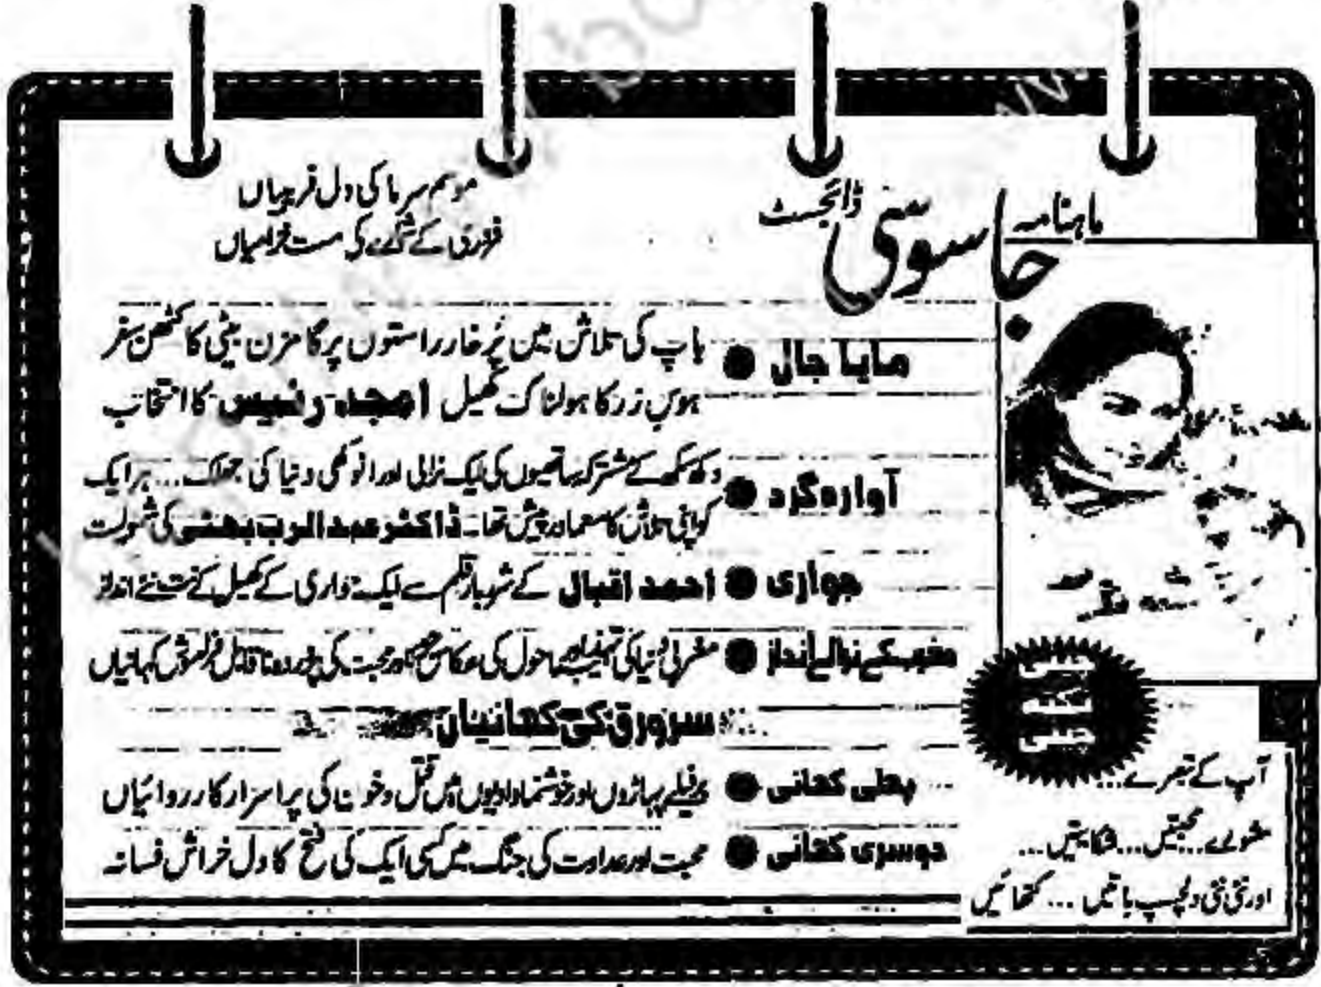 ماہنامہ جاسوسی ڈائجسٹ
موسم سرما کی دل فریبیاں
فروری کے شمارے کی مست خرامیاں
مایا جال ● باپ کی تلاش میں پُرخار راستوں پر گامزن بیٹی کا کٹھن سفر
ہوسِ زر کا ہولناک کھیل امجد رئیس کا انتخاب
آوارہ گرد ● دکھ سکھ کے مشترکہ ساتھیوں کی ایک نرالی اور انوکھی دنیا کی جھلک... ہر ایک
کو اپنی تلاش کا معما درپیش تھا۔ ڈاکٹر عبدالرب بھٹی کی شمولیت
جواری ● احمد اقبال کے شہباز قلم سے ایک جواری کے کھیل کے نت نئے انداز
مغرب کے نرالے انداز ● مغربی دنیا کی تہذیب اور ماحول کی عکاس اور محبت کی ناقابل فراموش کہانیاں
سرورق کی کہانیاں
پہلی کہانی ● برفیلے پہاڑوں اور خوشنما وادیوں میں قتل و خون کی پراسرار کارروائیاں
دوسری کہانی ● محبت اور عداوت کی جنگ میں کسی ایک کی فتح کا دل خراش فسانہ
چینی
نکتہ
چینی
آپ کے تبصرے...
مشورے... محبتیں... شکایتیں...
اور نئی نئی دلچسپ باتیں ... کتھائیں